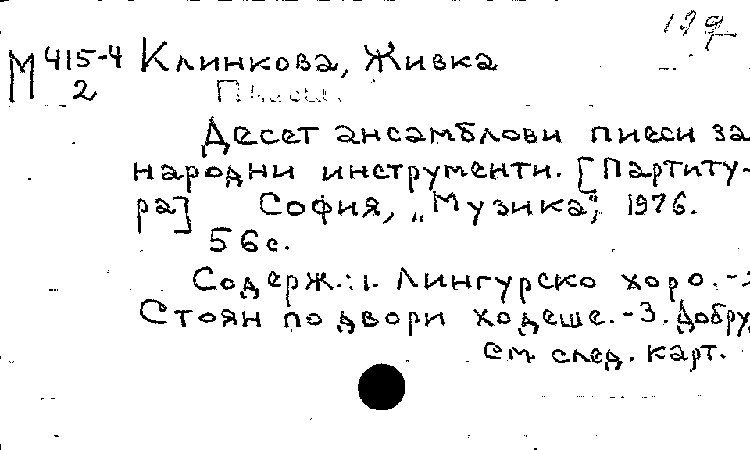 М 415-4 Клинкова, Живка
2
Десет ансамблови пиеси за
народни инструменти. [Партиту-
ра] София, „Музика“, 1976.
56 с.
Содерж.: 1. Лингурско хоро. -2
Стоян по двори ходеше. -3. Добру
см. след. карт.